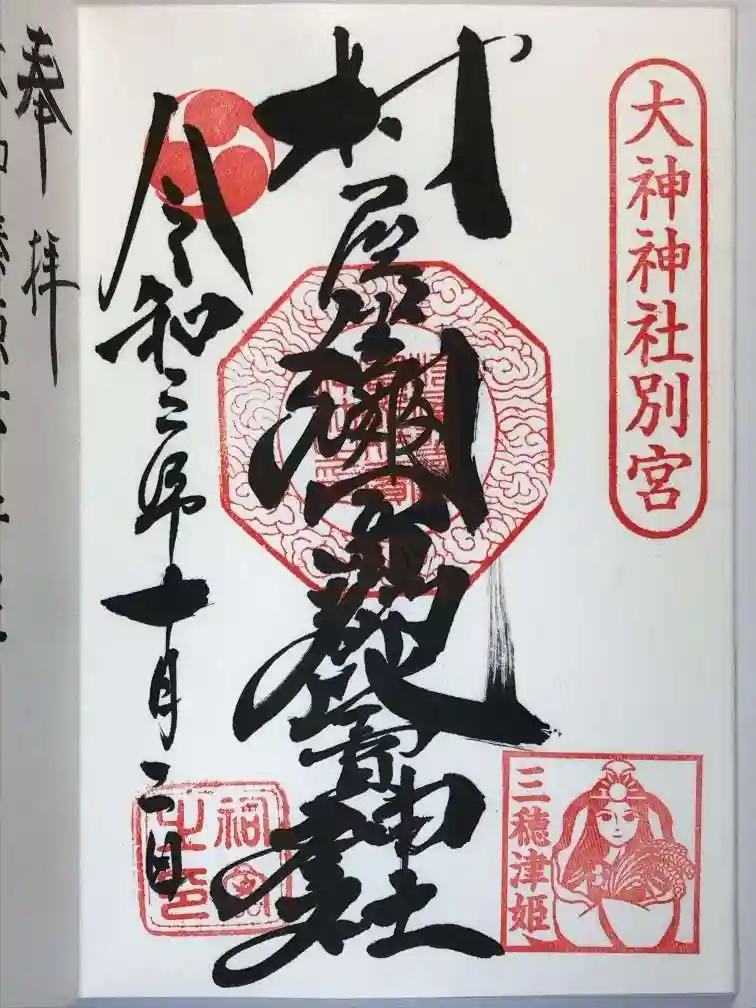 大神神社別宮
村屋坐弥冨都比売神社
令和三年十月二日
三穂津姫
奉拝